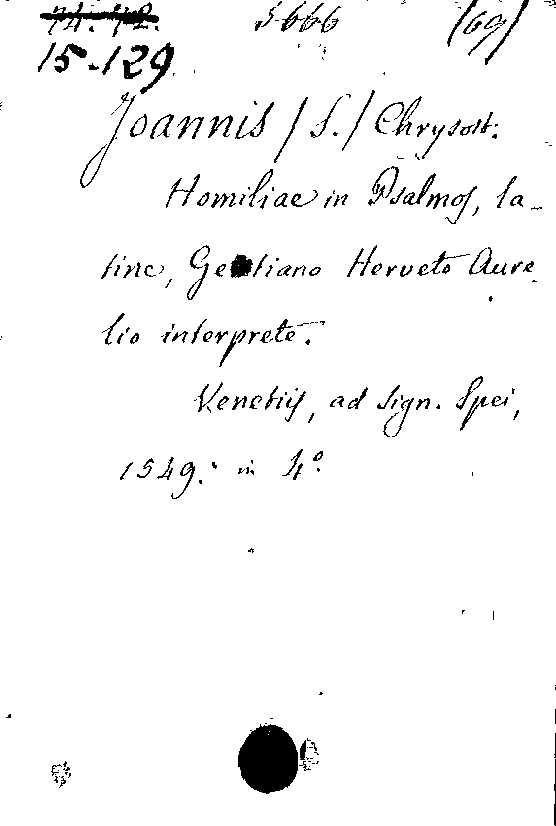 74.42. 5666 (69)
15-129
Joannis /S./ Chrysost.
Homiliae in Psalmos, la-
tine, Gentiano Herveto Aure
lio interprete.
Venetiis, ad sign. Spei,
1549. in 4º